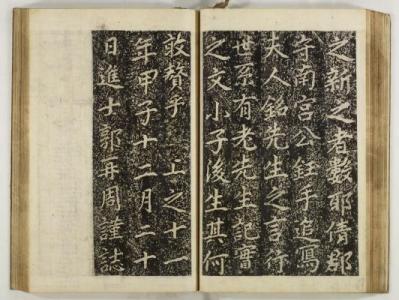 之新之者歟耶倩郡
守南宮公鈺手追寫
夫人銘先生之言行
世系有老先生記實
之文小子後生其何
敢贅乎 上之十一
年甲子十二月二十
日進士郭再周謹誌